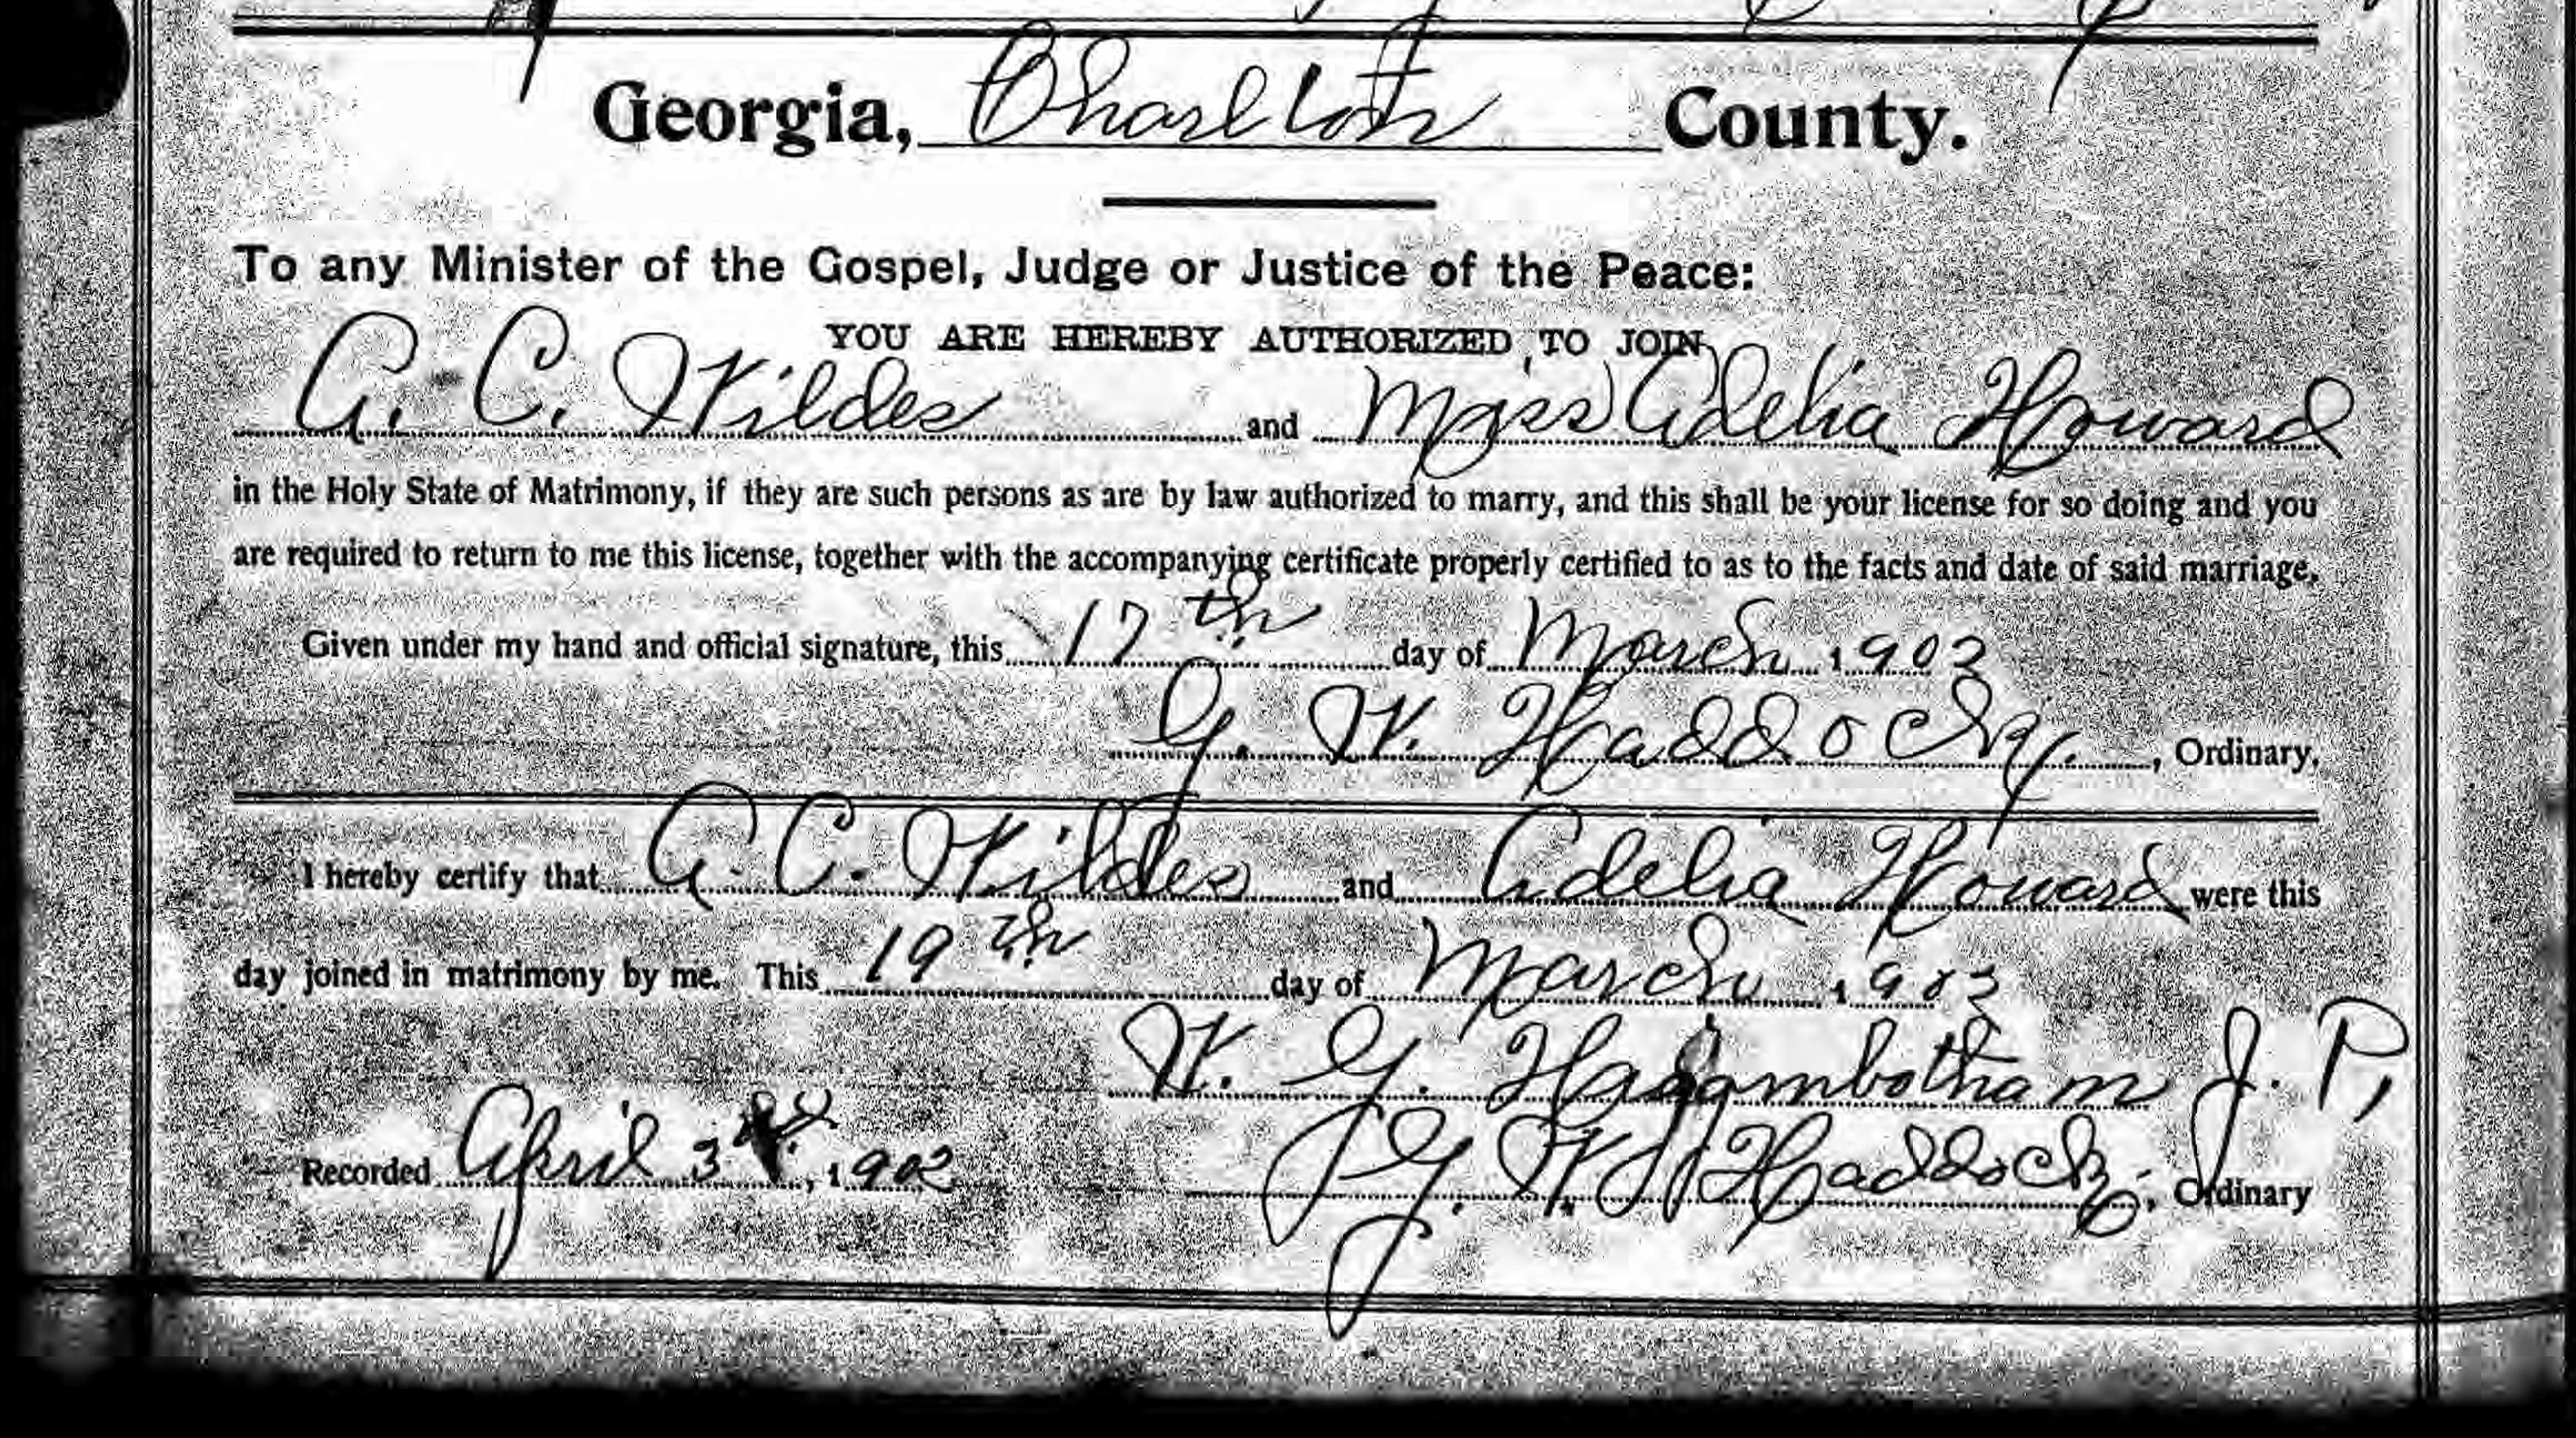 Georgia, Charlton County.
To any Minister of the Gospel, Judge or Justice of the Peace:
YOU ARE HEREBY AUTHORIZED TO JOIN
A. C. Wildes and Miss Adelia Howard
in the Holy State of Matrimony, if they are such persons as are by law authorized to marry, and this shall be your license for so doing and you
are required to return to me this license, together with the accompanying certificate properly certified to as to the facts and date of said marriage.
Given under my hand and official signature, this 17th day of March 1902
G. W. Haddock, Ordinary.
I hereby certify that A. C. Wildes and Adelia Howard were this
day joined in matrimony by me. This 19th day of March 1902
W. G. J. P.
Recorded April 3, 1902 G. W. Haddock, Ordinary